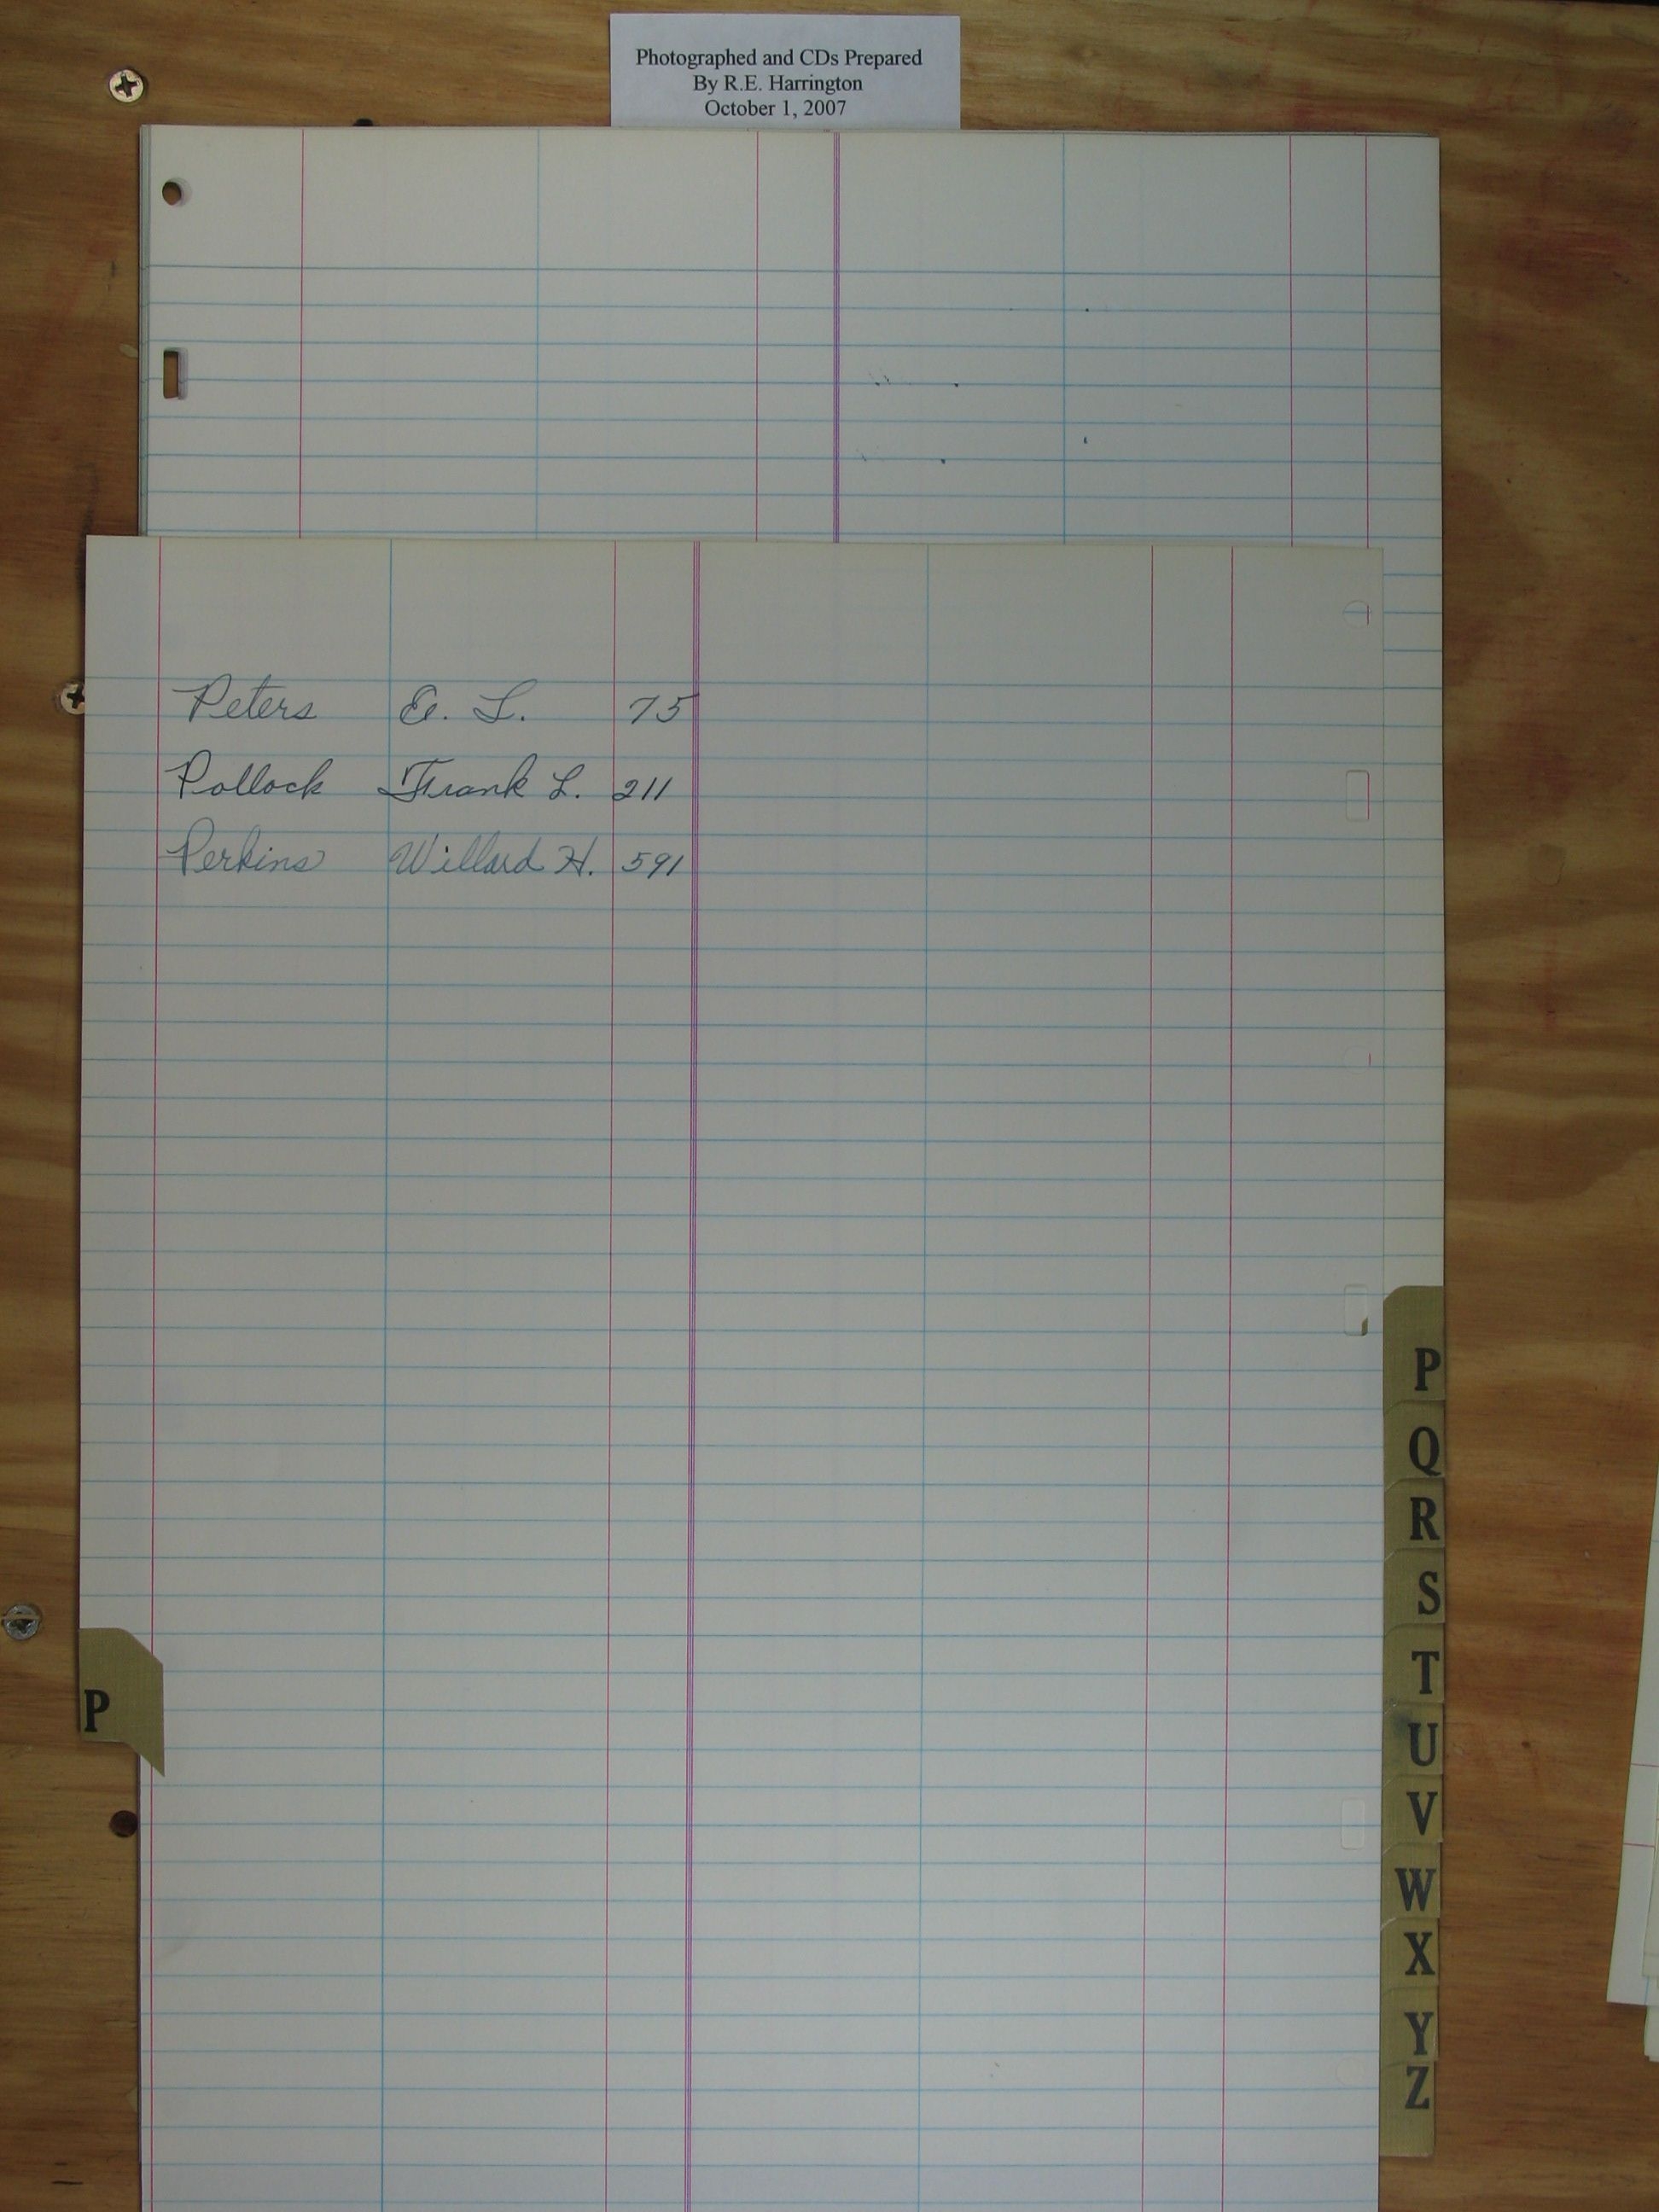 Photographed and CDs Prepared
By R.E. Harrington
October 1, 2007
Peters E. L. 75
Pollock Frank L. 211
Perkins Willard H. 591
P
P
Q
R
S
T
U
V
W
X
Y
Z